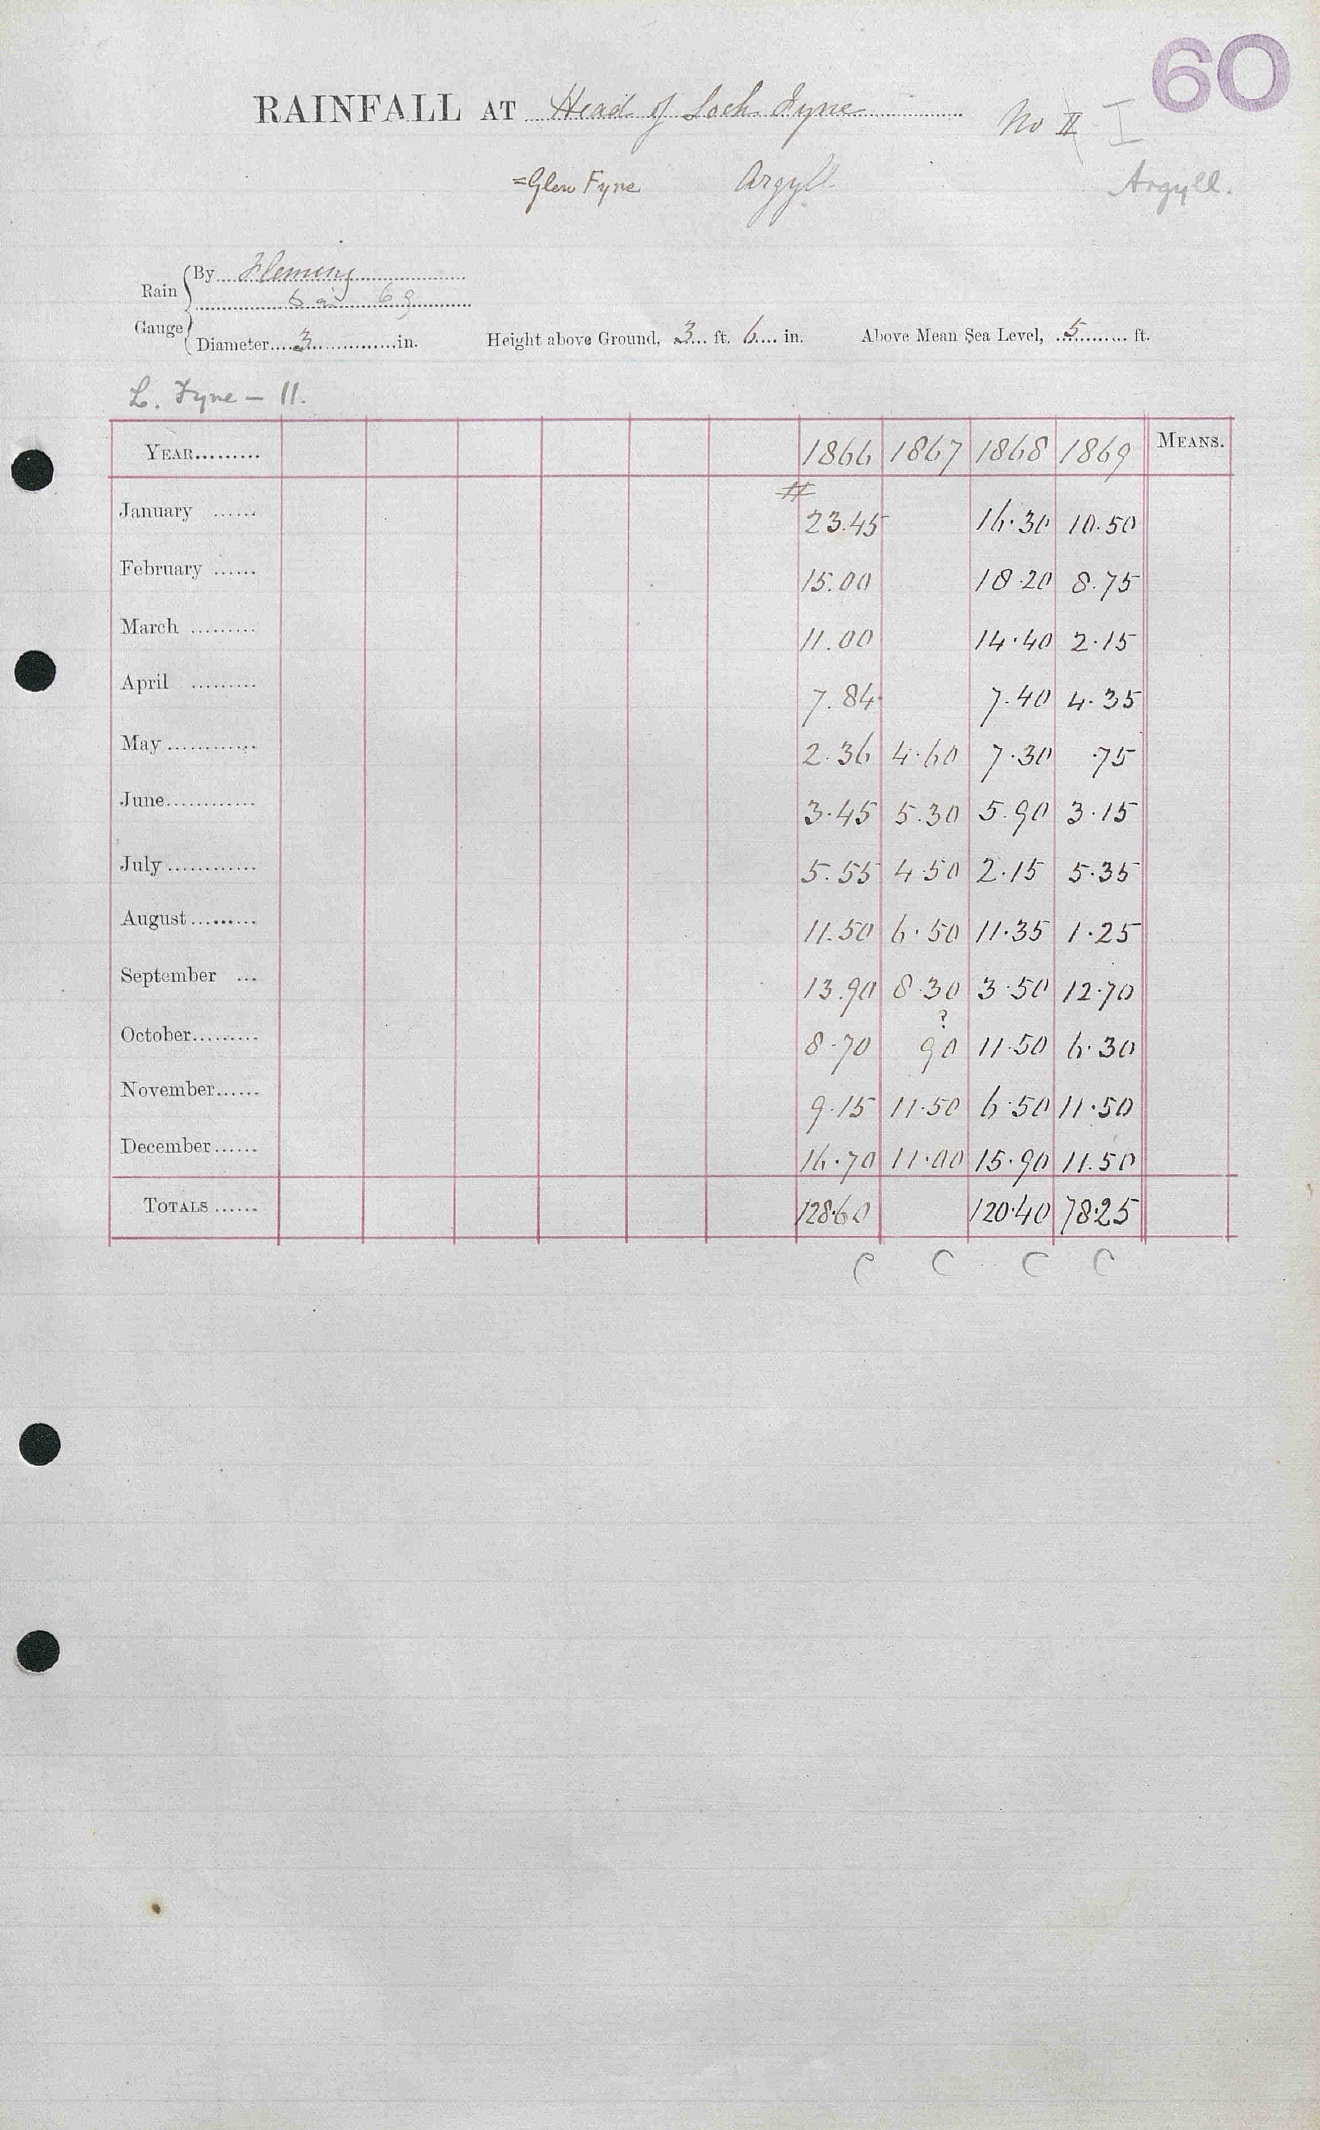 60
RAINFALL AT Head of Loch Fyne No II I
=Glen Fyne Argyll Argyll.
Rain Gauge { By Fleming
69
Diameter 3 in. Height above Ground, 3 ft. 6 in. Above Mean Sea Level, 5 ft.
L. Fyne - 11.
YEAR......... 1866 1867 1868 1869 MEANS.
January ...... # 23.45 16.30 10.50
February ...... 15.00 18.20 8.75
March ......... 11.00 14.40 2.15
April ......... 7.84 7.40 4.35
May............ 2.36 4.60 7.30 .75
June............ 3.45 5.30 5.90 3.15
July............ 5.55 4.50 2.15 5.35
August......... 11.50 6.50 11.35 1.25
September ... 13.90 8.30 3.50 12.70
October......... 8.70 ? 90 11.50 6.30
November...... 9.15 11.50 6.50 11.50
December...... 16.70 11.00 15.90 11.50
TOTALS ...... 128.60 120.40 78.25
C C C C